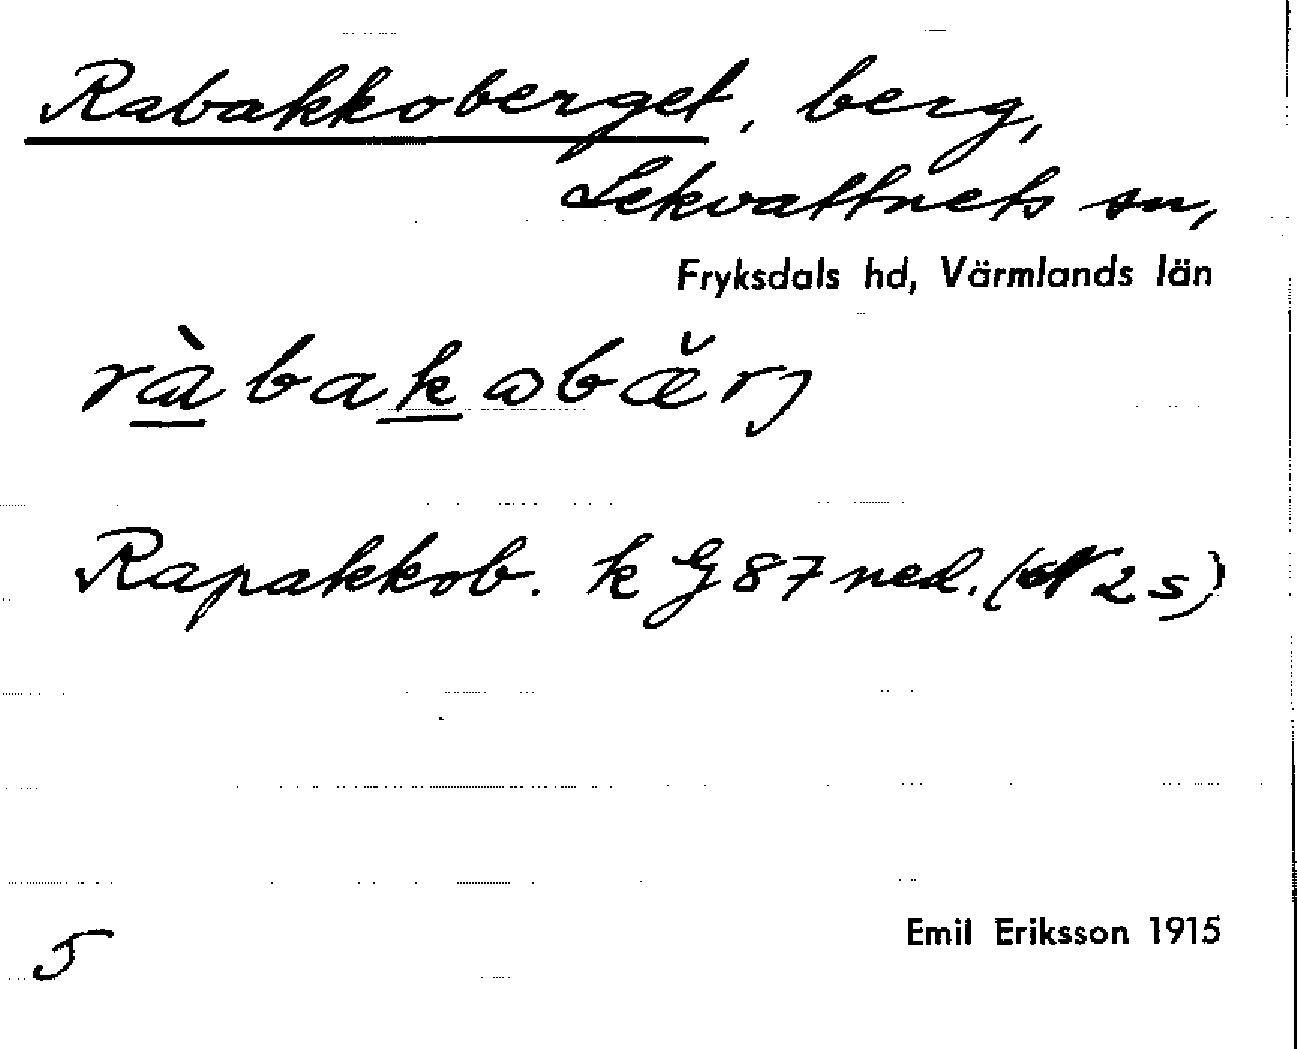 Rabakkoberget, berg,
Lekvattnets sn,
Fryksdals hd, Värmlands län
ràbakωbæ̌rj
Rapakkob. k G 87 ned. (N 2 s)
5
Emil Eriksson 1915